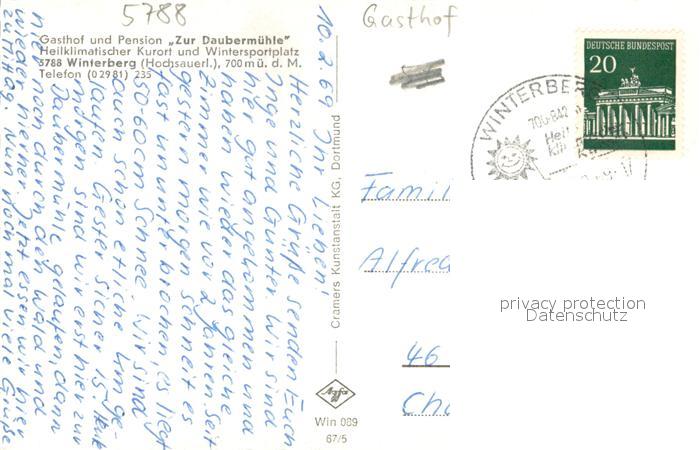 5788
Gasthof
Gasthof und Pension „Zur Daubermühle"
Heilklimatischer Kurort und Wintersportplatz
5788 Winterberg (Hochsauerl.), 700 m ü. d. M.
Telefon (02981) 235
10.2.69 Ihr Lieben.
Herzliche Grüße senden Euch
Inge und Günter Wir sind
hier gut angekommen und
haben wieder das gleiche
Zimmer wie vor 2 Jahren. Seit
gestern morgen schneit es
fast ununterbrochen, es liegt
50-60 cm Schnee. Wir sind
auch schon etliche km ge-
laufen Gester sicher 15. Heute
morgen sind wir erst hier zur
Daubermühle gelaufen, dann
noch durch den Wald und
wieder hierher. Jetzt essen wir hier
zu Mittag. Nun noch mal viele Grüße
Cramers Kunstanstalt KG, Dortmund
Agfa
Win 089
67/5
DEUTSCHE BUNDESPOST
20
WINTERBERG
700-842
Heil
Kli
Famil
Alfred
46
privacy protection
Datenschutz